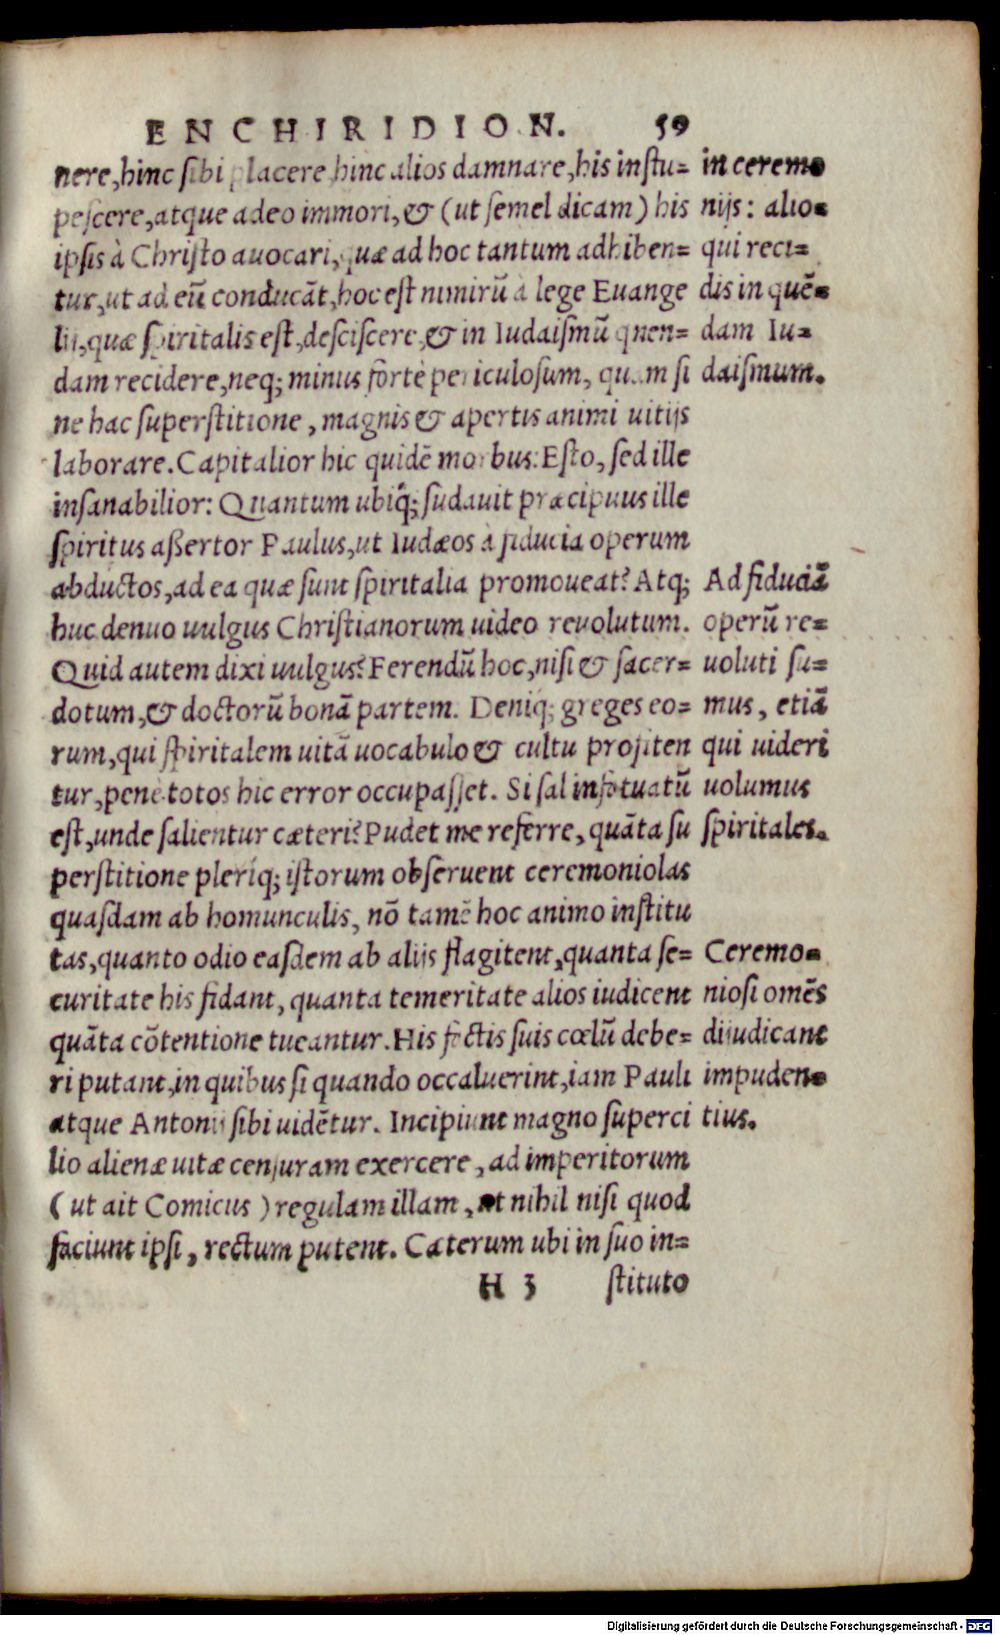 ENCHIRIDION. 59
nere, hinc sibi placere, hinc alios damnare, his instu-
pescere, atque adeo immori, & (ut semel dicam) his
ipsis à Christo auocari, quæ ad hoc tantum adhiben-
tur, ut ad eũ conducãt, hoc est nimirũ à lege Euange
lij, quæ spiritalis est, desciscere, & in Iudaismũ quen-
dam recidere, neq; minus fortè periculosum, quam si
ne hac superstitione, magnis & apertis animi uitijs
laborare. Capitalior hic quidẽ morbus: Esto, sed ille
insanabilior: Quantum ubiq̃; sudauit præcipuus ille
spiritus aßertor Paulus, ut Iudæos à fiducia operum
abductos, ad ea quæ sunt spiritalia promoueat? Atq;
huc denuo uulgus Christianorum uideo reuolutum.
Quid autem dixi uulgus? Ferendũ hoc, nisi & sacer-
dotum, & doctorũ bonã partem. Deniq; greges eo-
rum, qui spiritalem uitã uocabulo & cultu profiten
tur, penè totos hic error occupasset. Si sal infatuatũ
est, unde salientur cæteri? Pudet me referre, quãta su
perstitione pleriq; istorum obseruent ceremoniolas
quasdam ab homunculis, nõ tamẽ hoc animo institu
tas, quanto odio easdem ab alijs flagitent, quanta se-
curitate his fidant, quanta temeritate alios iudicent
quãta cõtentione tueantur. His factis suis cœlũ debe-
ri putant, in quibus si quando occaluerint, iam Pauli
atque Antonij sibi uidẽtur. Incipiunt magno superci
lio alienæ uitæ censuram exercere, ad imperitorum
(ut ait Comicus) regulam illam, ut nihil nisi quod
faciunt ipsi, rectum putent. Cæterum ubi in suo in-
H 3 stituto
in ceremo
nijs: alio-
qui reci-
dis in quẽ-
dam Iu-
daismum.
Ad fiduciã
operũ re-
uoluti su-
mus, etiã
qui uideri
uolumus
spiritales.
Ceremo-
niosi omẽs
dijudicant
impuden-
tius.
Digitalisierung gefördert durch die Deutsche Forschungsgemeinschaft - DFG